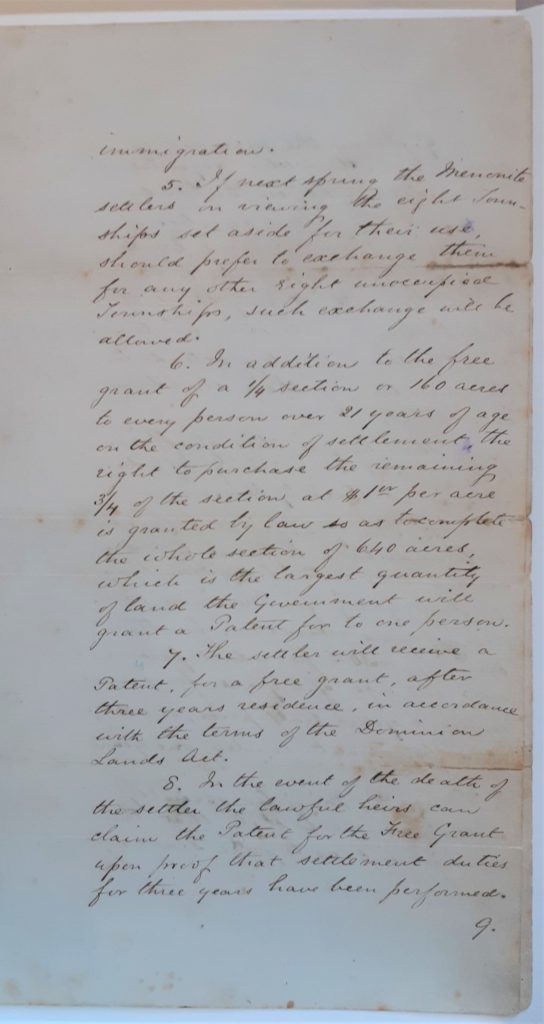 immigration.
5. If next spring the Menonite
settlers on viewing the eight Town-
ships set aside for their use,
should prefer to exchange them
for any other eight unoccupied
Townships, such exchange will be
allowed.
6. In addition to the free
grant of a 1/4 section or 160 acres
to every person over 21 years of age
on the condition of settlement, the
right to purchase the remaining
3/4 of the section at $1 00 per acre
is granted by law so as to complete
the whole section of 640 acres,
which is the largest quantity
of land the Government will
grant a Patent for to one person.
7. The settler will receive a
Patent, for a free grant, after
three years residence, in accordance
with the terms of the Dominion
Lands Act.
8. In the event of the death of
the settler the lawful heirs can
claim the Patent for the Free Grant
upon proof that settlement duties
for three years have been performed.
9.